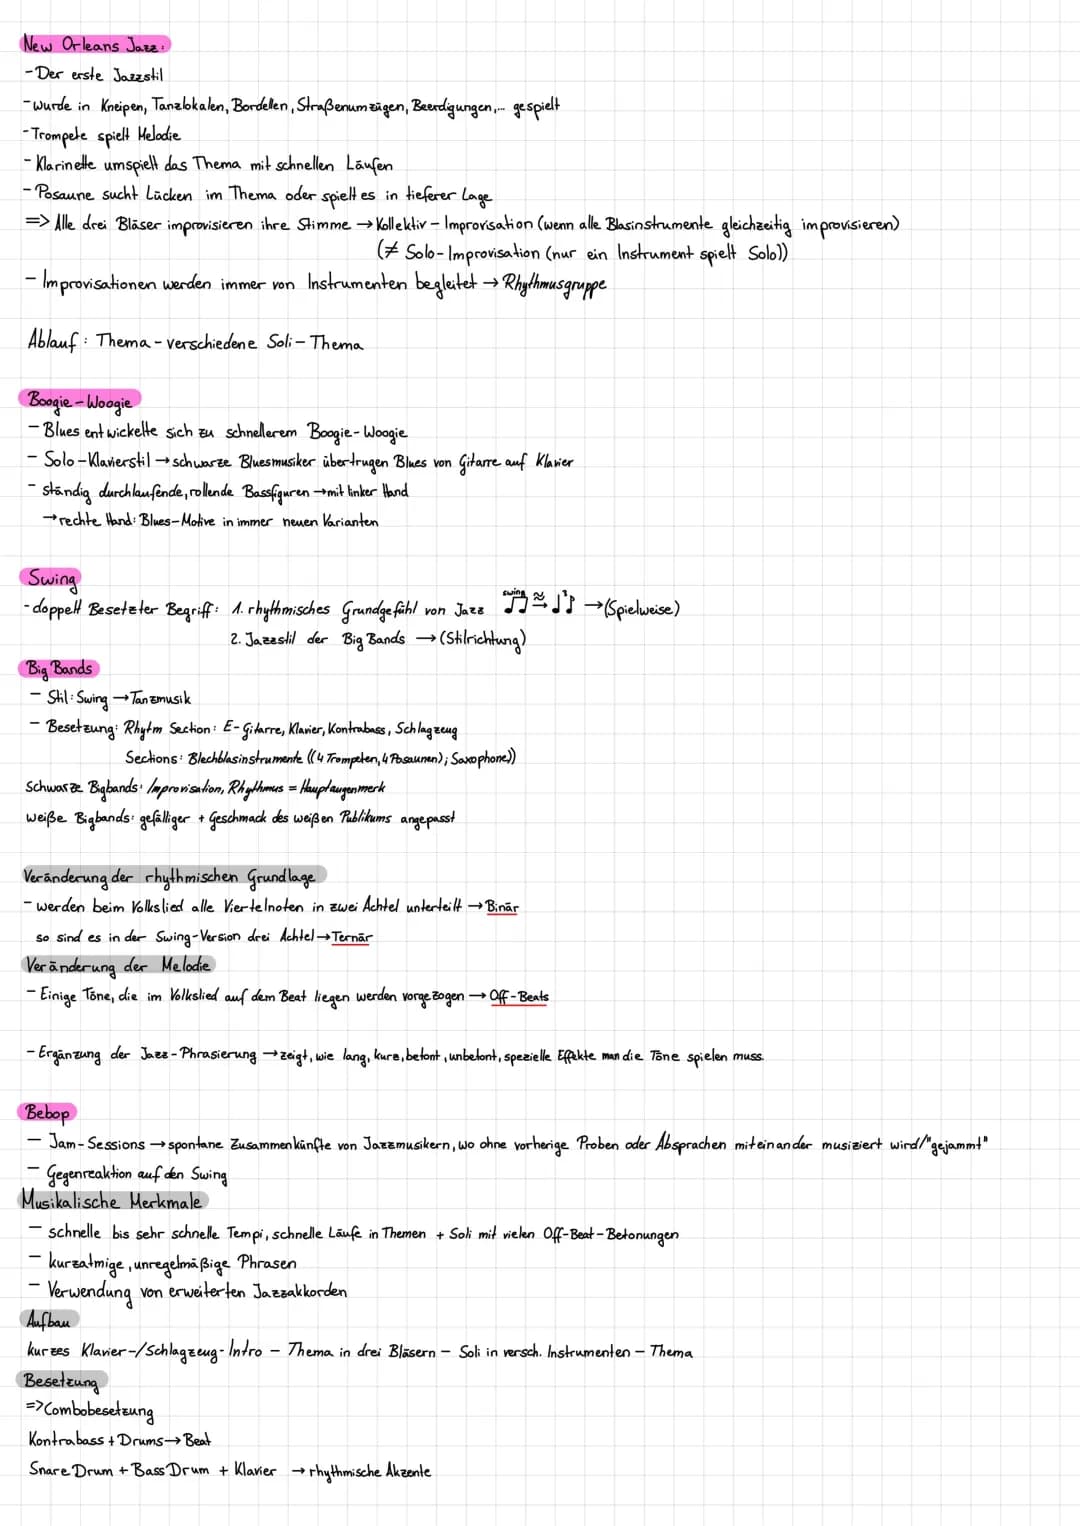 New Orleans Jazz:
- Der erste Jazzstil
- wurde in Kneipen, Tanzlokalen, Bordellen, Straßenumzügen, Beerdigungen,... gespielt
- Trompete spielt Melodie
- Klarinette umspielt das Thema mit schnellen Läufen
- Posaune sucht Lücken im Thema oder spielt es in tieferer Lage
=> Alle drei Bläser improvisieren ihre Stimme → Kollektiv - Improvisation (wenn alle Blasinstrumente gleichzeitig improvisieren)
(≠ Solo-Improvisation (nur ein Instrument spielt Solo))
- Improvisationen werden immer von Instrumenten begleitet → Rhythmusgruppe
Ablauf: Thema - verschiedene Soli - Thema
Boogie - Woogie
- Blues entwickelte sich zu schnellerem Boogie-Woogie
- Solo-Klavierstil → schwarze Bluesmusiker übertrugen Blues von Gitarre auf Klavier
- ständig durchlaufende, rollende Bassfiguren → mit linker Hand
→ rechte Hand: Blues-Motive in immer neuen Varianten
Swing
- doppelt Besetzter Begriff: 1. rhythmisches Grundgefühl von Jazz swing ♫ ≈ ♩³♪ → (Spielweise)
2. Jazzstil der Big Bands → (Stilrichtung)
Big Bands
- Stil: Swing → Tanzmusik
- Besetzung: Rhytm Section: E-Gitarre, Klavier, Kontrabass, Schlagzeug
Sections: Blechblasinstrumente ((4 Trompeten, 4 Posaunen); Saxophone))
Schwarze Bigbands: Improvisation, Rhythmus = Hauptaugenmerk
weiße Bigbands: gefälliger + Geschmack des weißen Publikums angepasst
Veränderung der rhythmischen Grundlage
- werden beim Volkslied alle Viertelnoten in zwei Achtel unterteilt → Binär
so sind es in der Swing-Version drei Achtel → Ternär
Veränderung der Melodie
- Einige Töne, die im Volkslied auf dem Beat liegen werden vorgezogen → Off-Beats
- Ergänzung der Jazz-Phrasierung → zeigt, wie lang, kurz, betont, unbetont, spezielle Effekte man die Töne spielen muss.
Bebop
- Jam-Sessions → spontane Zusammenkünfte von Jazzmusikern, wo ohne vorherige Proben oder Absprachen miteinander musiziert wird/"gejammt"
- Gegenreaktion auf den Swing
Musikalische Merkmale
- schnelle bis sehr schnelle Tempi, schnelle Läufe in Themen + Soli mit vielen Off-Beat-Betonungen
- kurzatmige, unregelmäßige Phrasen
- Verwendung von erweiterten Jazzakkorden
Aufbau
kurzes Klavier-/Schlagzeug-Intro - Thema in drei Bläsern - Soli in versch. Instrumenten - Thema
Besetzung
=> Combobesetzung
Kontrabass + Drums → Beat
Snare Drum + Bass Drum + Klavier → rhythmische Akzente